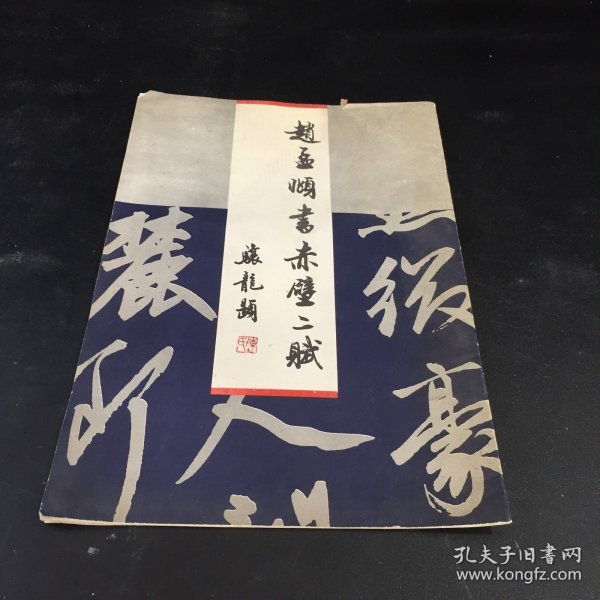 趙孟頫書赤壁二賦
驤龍題
微
豪
人
麓
孔夫子旧書网
www.kongfz.com